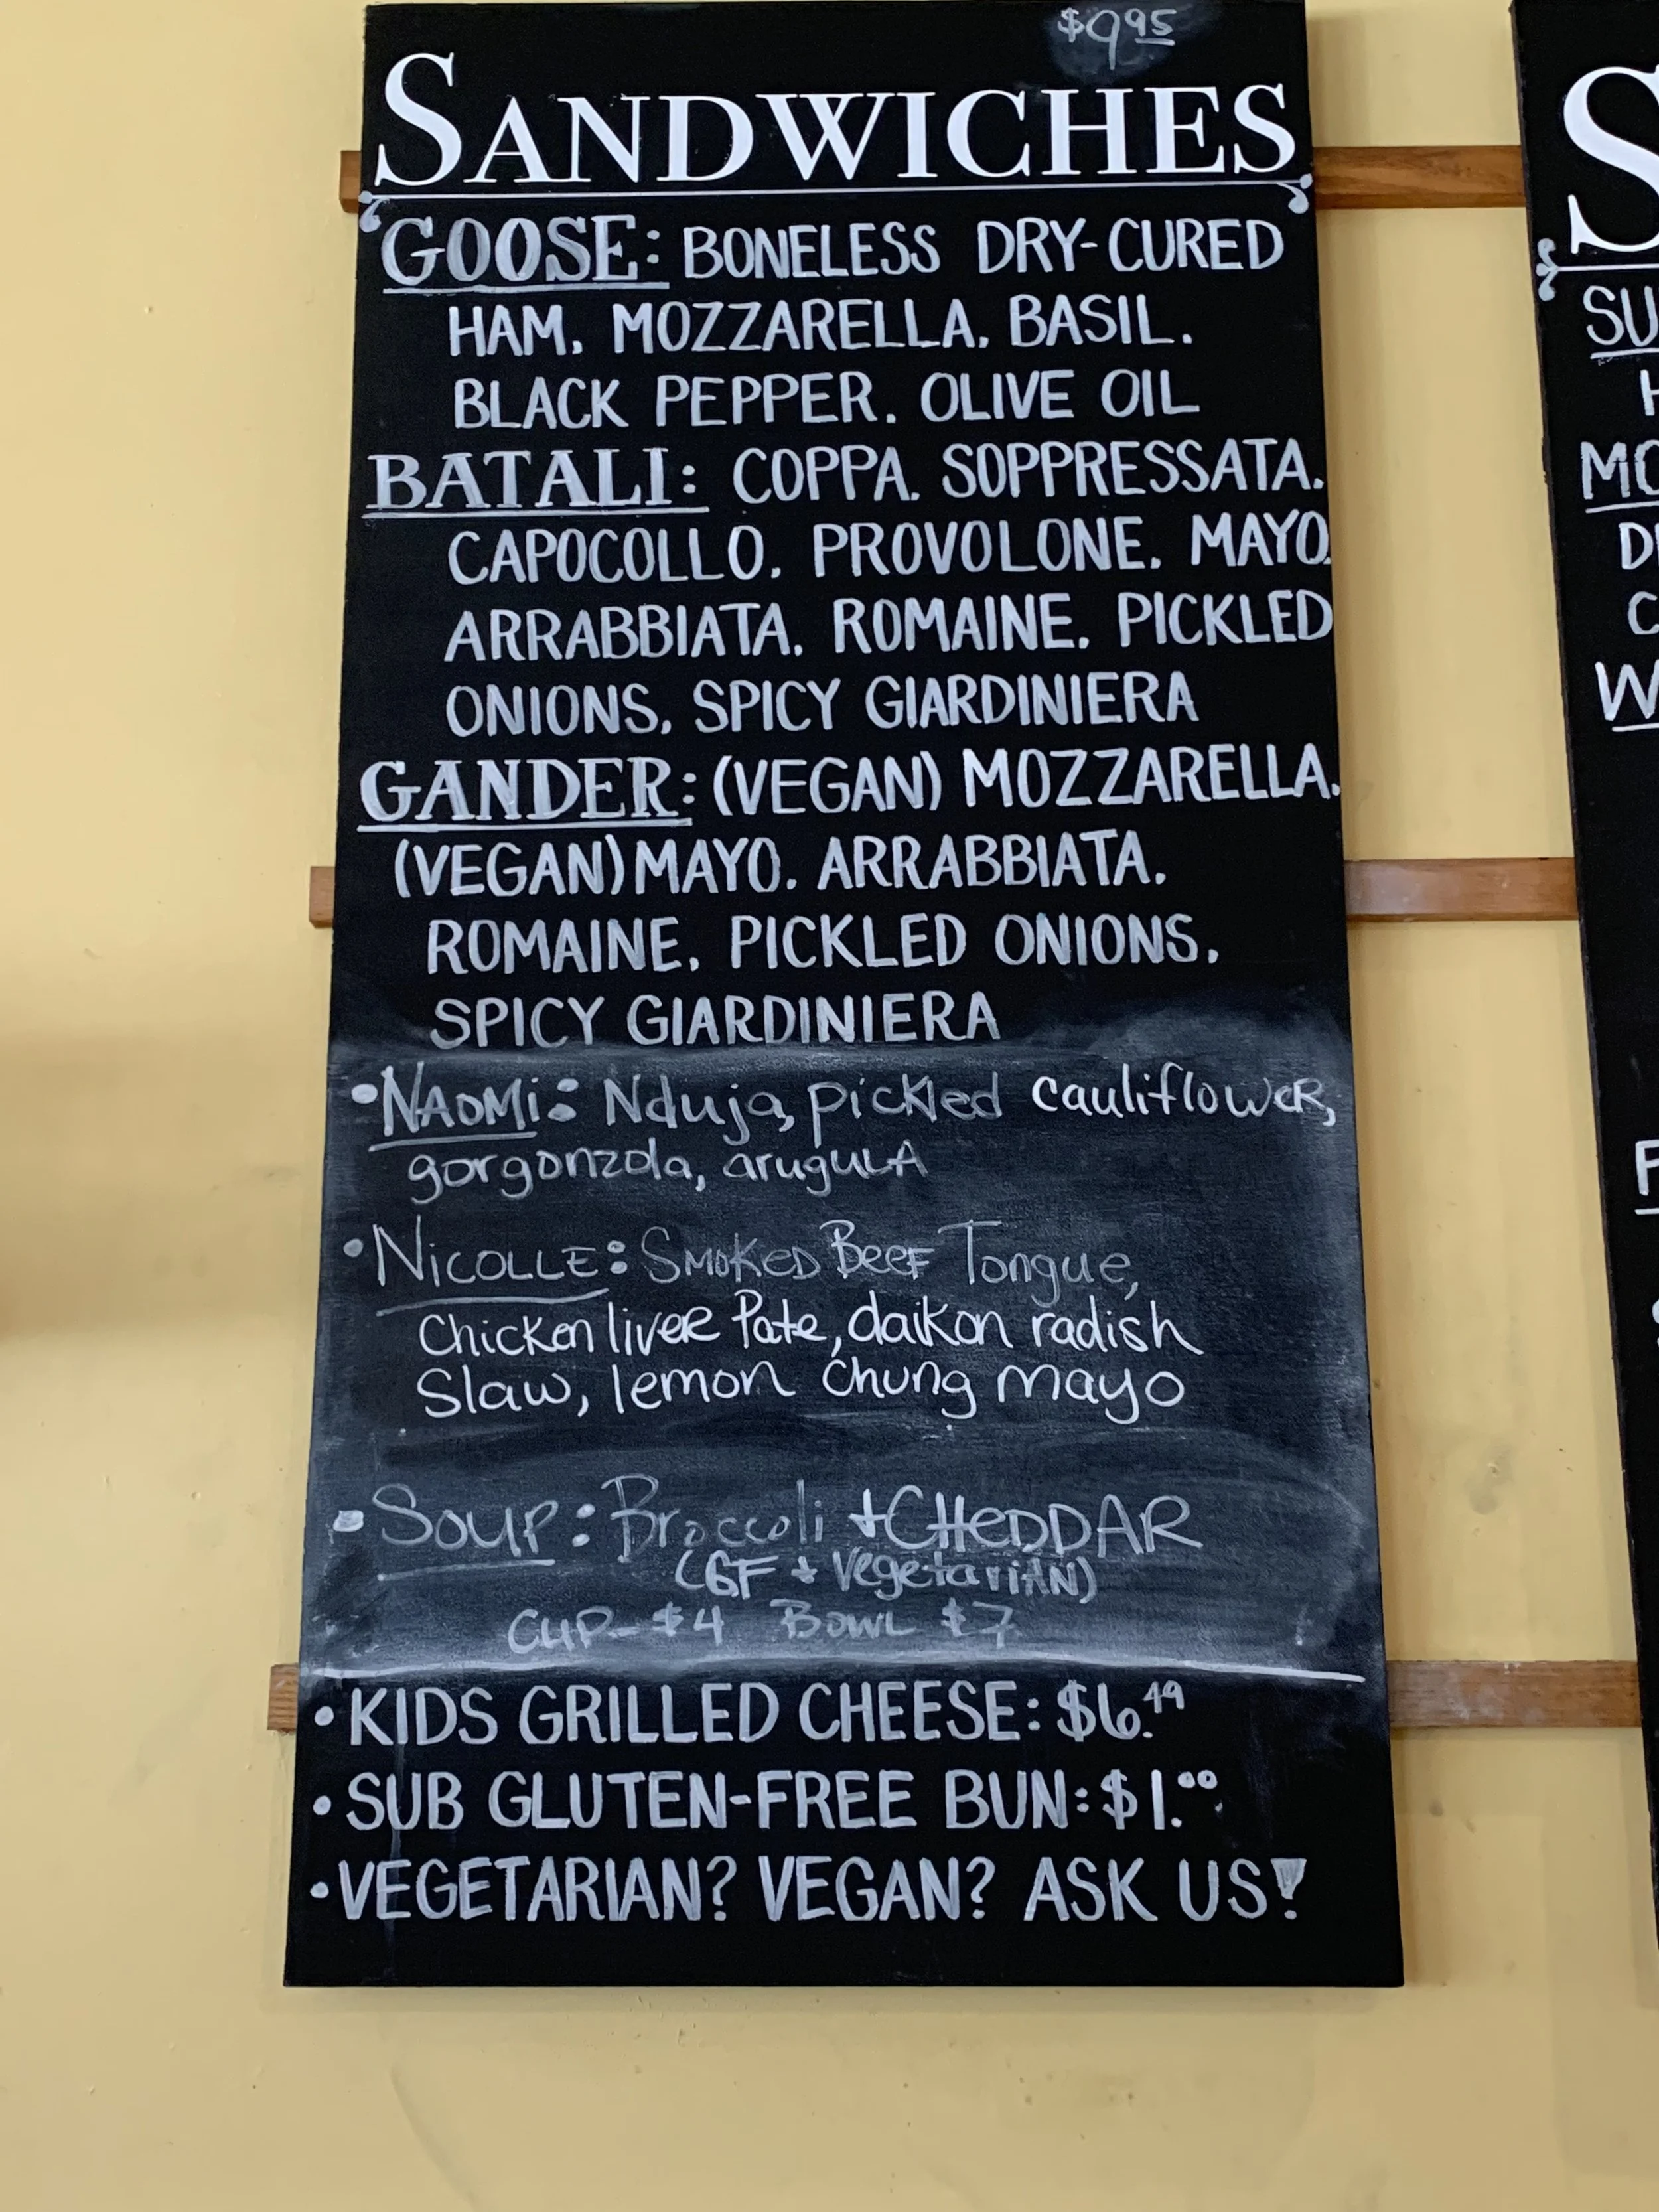 $9.95
SANDWICHES
GOOSE: BONELESS DRY-CURED
HAM, MOZZARELLA, BASIL,
BLACK PEPPER, OLIVE OIL
BATALI: COPPA, SOPPRESSATA,
CAPOCOLLO, PROVOLONE, MAYO,
ARRABBIATA, ROMAINE, PICKLED
ONIONS, SPICY GIARDINIERA
GANDER: (VEGAN) MOZZARELLA,
(VEGAN) MAYO, ARRABBIATA,
ROMAINE, PICKLED ONIONS,
SPICY GIARDINIERA
•NAOMi: Nduja, pickled cauliflowER,
gorgonzola, aruguLA
•NiCOLLE: SMOKED BEEF Tongue,
Chicken liver Pate, daikon radish
Slaw, lemon Chung mayo
•SOUP: Broccoli + CHeDDAR
(GF + VegetariAN)
CUP- $4 BOWL $7
•KIDS GRILLED CHEESE: $6.49
•SUB GLUTEN-FREE BUN: $1.00
•VEGETARIAN? VEGAN? ASK US!
S
SU
H
MO
C
W
F